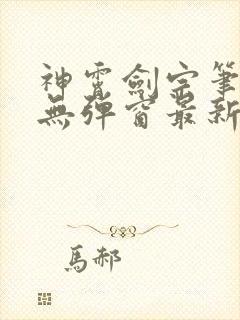 神霄劍宗筆
無彈窗最新
馬郝